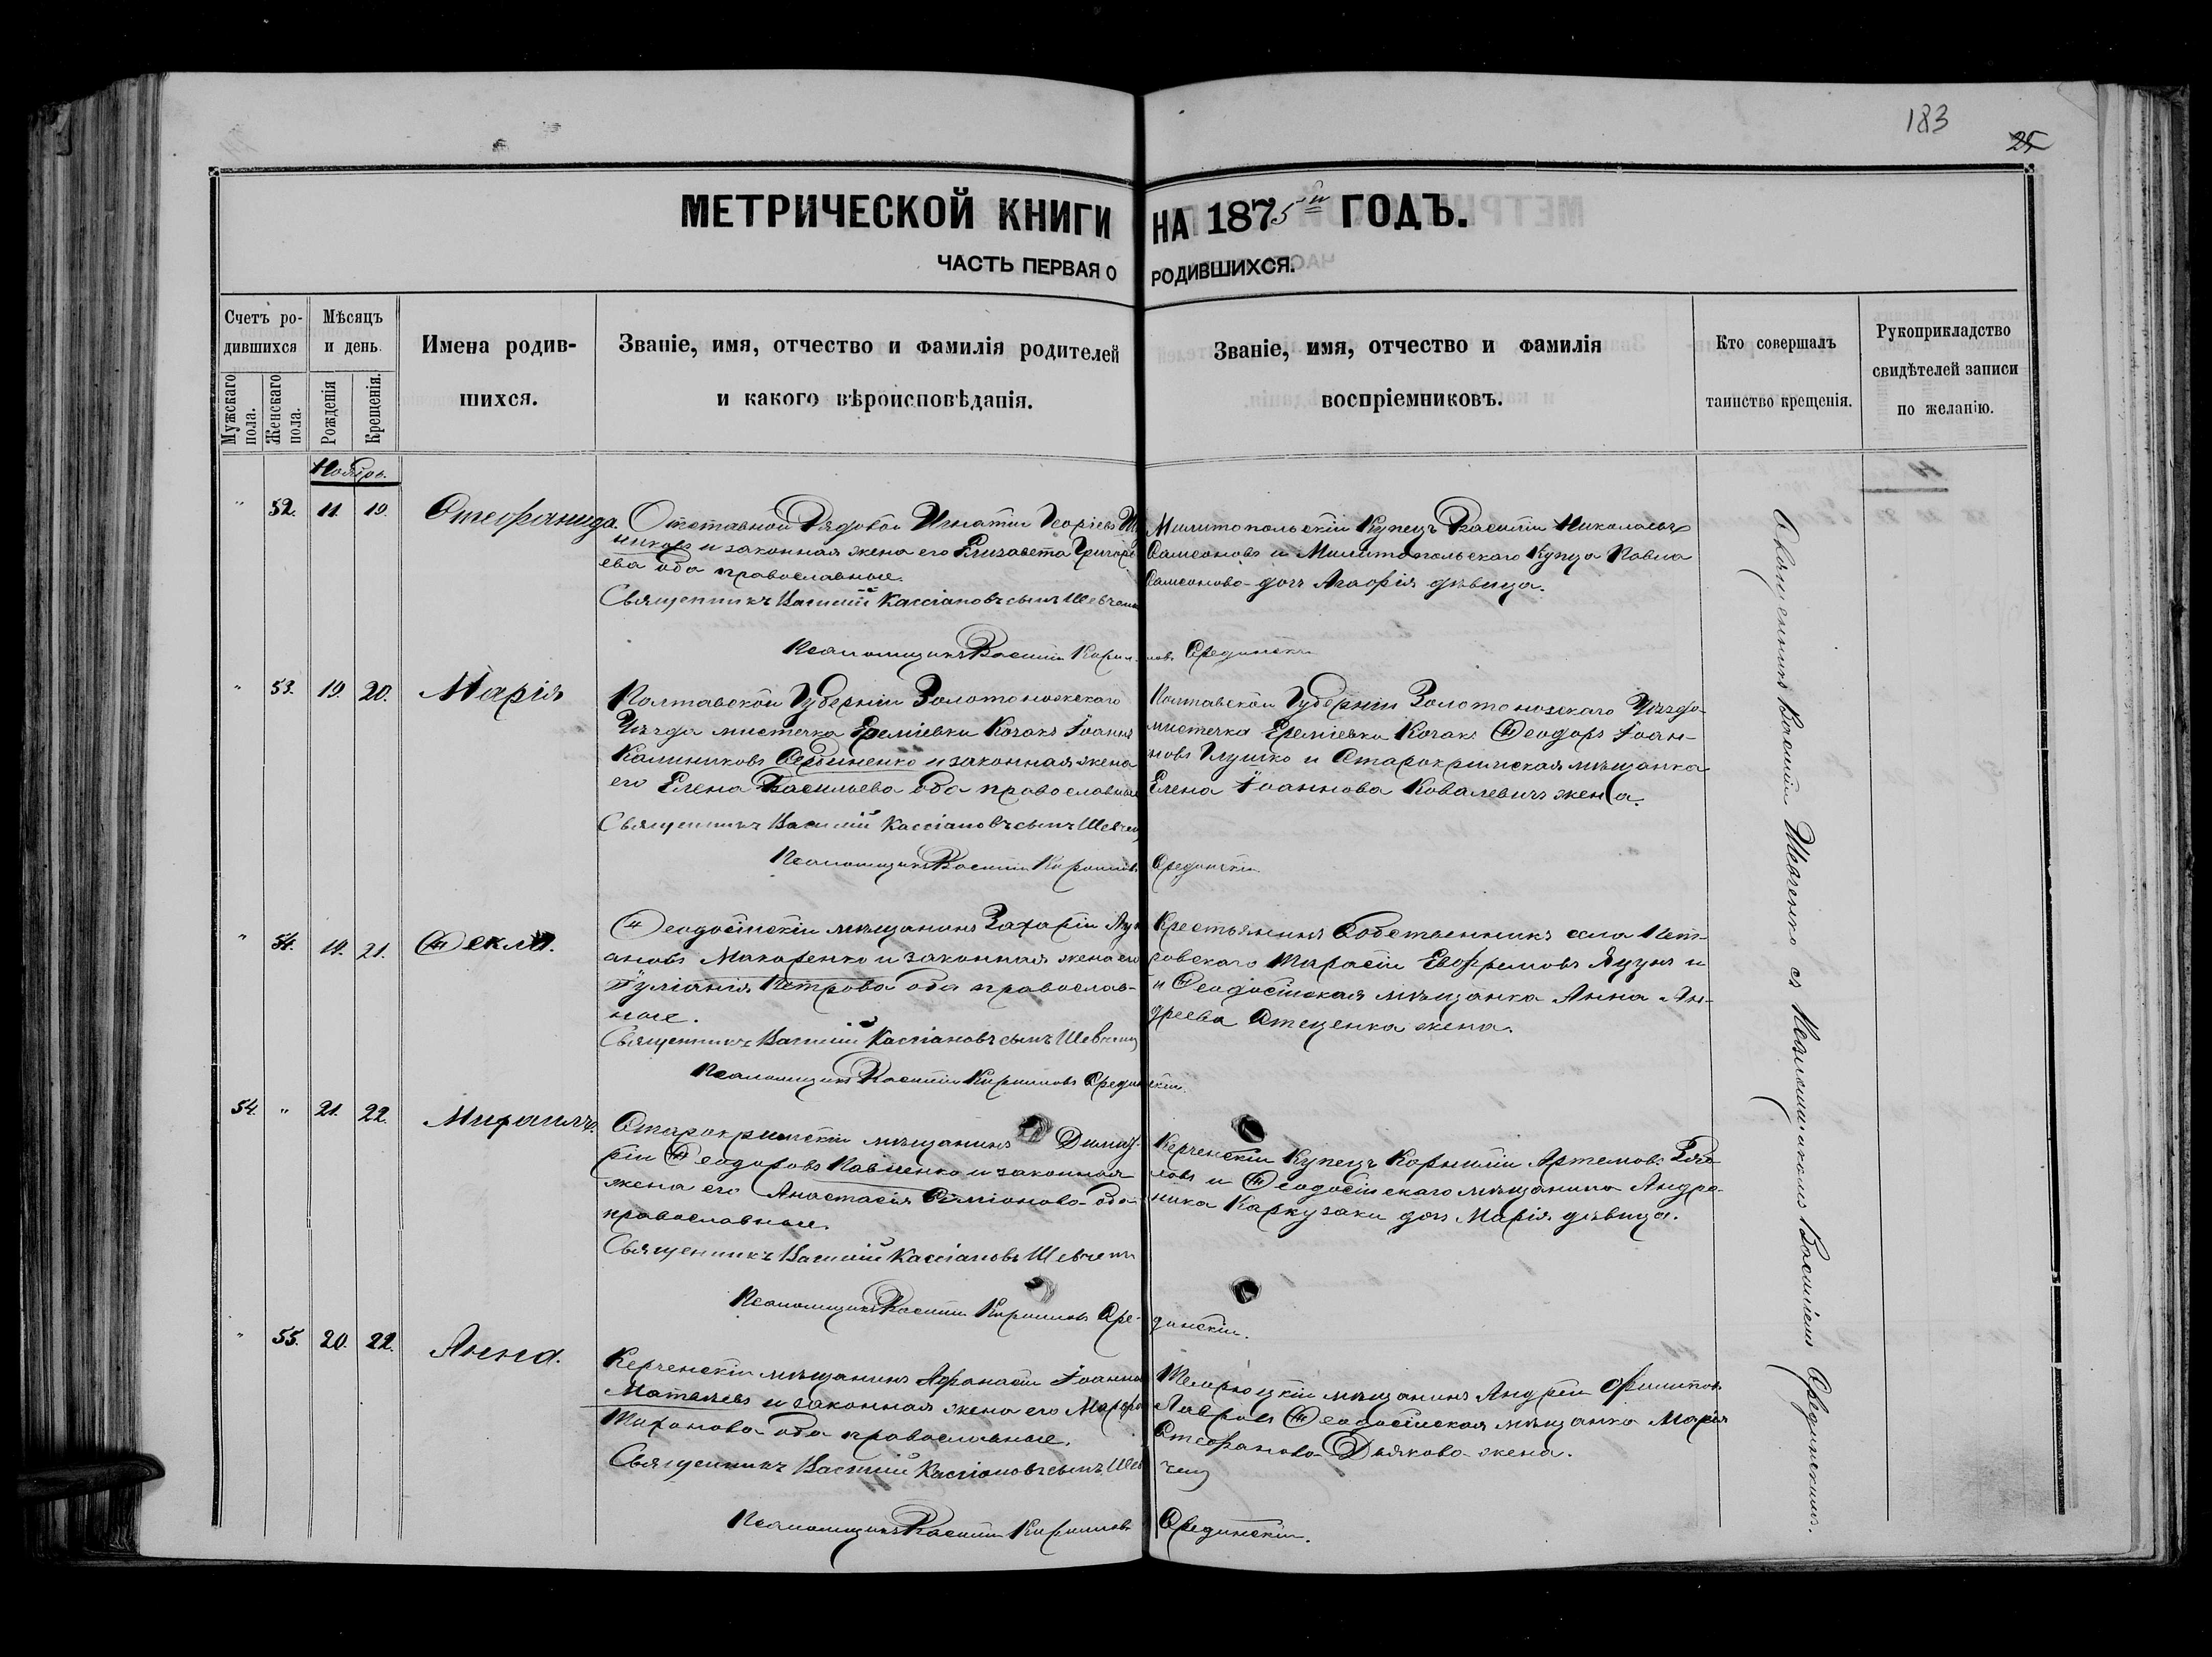 183
25
МЕТРИЧЕСКОЙ КНИГИ НА 1875й ГОДЪ.
ЧАСТЬ ПЕРВАЯ О РОДИВШИХСЯ.
Счетъ родившихся
Мужскаго пола.
Женскаго пола.
Мѣсяцъ и день.
Рожденія
Крещенія.
Имена родив-
шихся.
Званіе, имя, отчество и фамилія родителей
и какого вѣроисповѣданія.
Званіе, имя, отчество и фамилія
воспріемниковъ.
Кто совершалъ
таинство крещенія.
Рукоприкладство
свидѣтелей записи
по желанію.
Ноябрь.
" 52. 11. 19. Стефанида.
Отставной Рядовой Игнатій Георгіевъ
никовъ и законная жена его Елизавета Григорі
ева оба православные.
Священникъ Василій Кассіановъ сынъ Шевченк
Милитопольскій Купецъ Василій Николаевъ
Самсоновъ и Милитопольскаго Купца Павла
Самсонова дочь Агафія дѣвица.
Псаломщикъ Василій Кирилловъ Срединскій
" 53. 19. 20. Марія
Полтавской Губерніи Золотоножскаго
Уѣзда мистечка Ереміевки Козакъ Іоаннъ
Калиниковъ и законная жена
его Елена Васильева оба православные
Священникъ Василій Кассіановъ сынъ Шевчен
Полтавской Губерніи Золотоножскаго Уѣзда
мистечка Ереміевки Козакъ Ѳеодоръ Іоан-
новъ Глушко и Старокримская мѣщанка
Елена Іоаннова Ковалевичъ жена.
Псаломщикъ Василій Кирилловъ Срединскій
" 54. 14. 21. Ѳекла.
Ѳеодосійскій мѣщанинъ Захарій
ановъ Макаренко и законная жена его
Іуліанія Петрова оба православ-
ные.
Священникъ Василій Кассіановъ сынъ Шевченк
Крестьянинъ Собственникъ села Пет-
ровскаго Тарасій Евфремовъ Яцунъ и
и Ѳеодосійская мѣщанка Анна Ан-
дреева Стеценка жена.
Псаломщикъ Василій Кирилловъ Срединскій.
54. " 21. 22. Михаилъ.
Старокримскій мѣщанинъ Димит-
рій Ѳеодоровъ Павленко и законная
жена его Анастасія Симіонова оба
православные.
Священникъ Василій Кассіановъ Шевченк
Керченскій Купецъ Корнилій Артемовъ
ловъ и Ѳеодосійскаго мѣщанина Андро-
ника Каркузаки дочь Марія дѣвица.
Псаломщикъ Василій Кирилловъ Срединскій.
" 55. 20. 22. Анна.
Керченскій мѣщанинъ Афанасій Іоанно
Матвѣевъ и законная жена его Марфа
Тихонова оба православные.
Священникъ Василій Кассіановъ сынъ Шевченк
Темрюцкій мѣщанинъ Андрей Филиповъ
Лавровъ Ѳеодосійская мѣщанка Марія
Стефанова Дьякова жена.
Псаломщикъ Василій Кирилловъ Срединскій.
Священникъ Василій Шевченко съ Псаломщикомъ Василіемъ Срединскимъ.